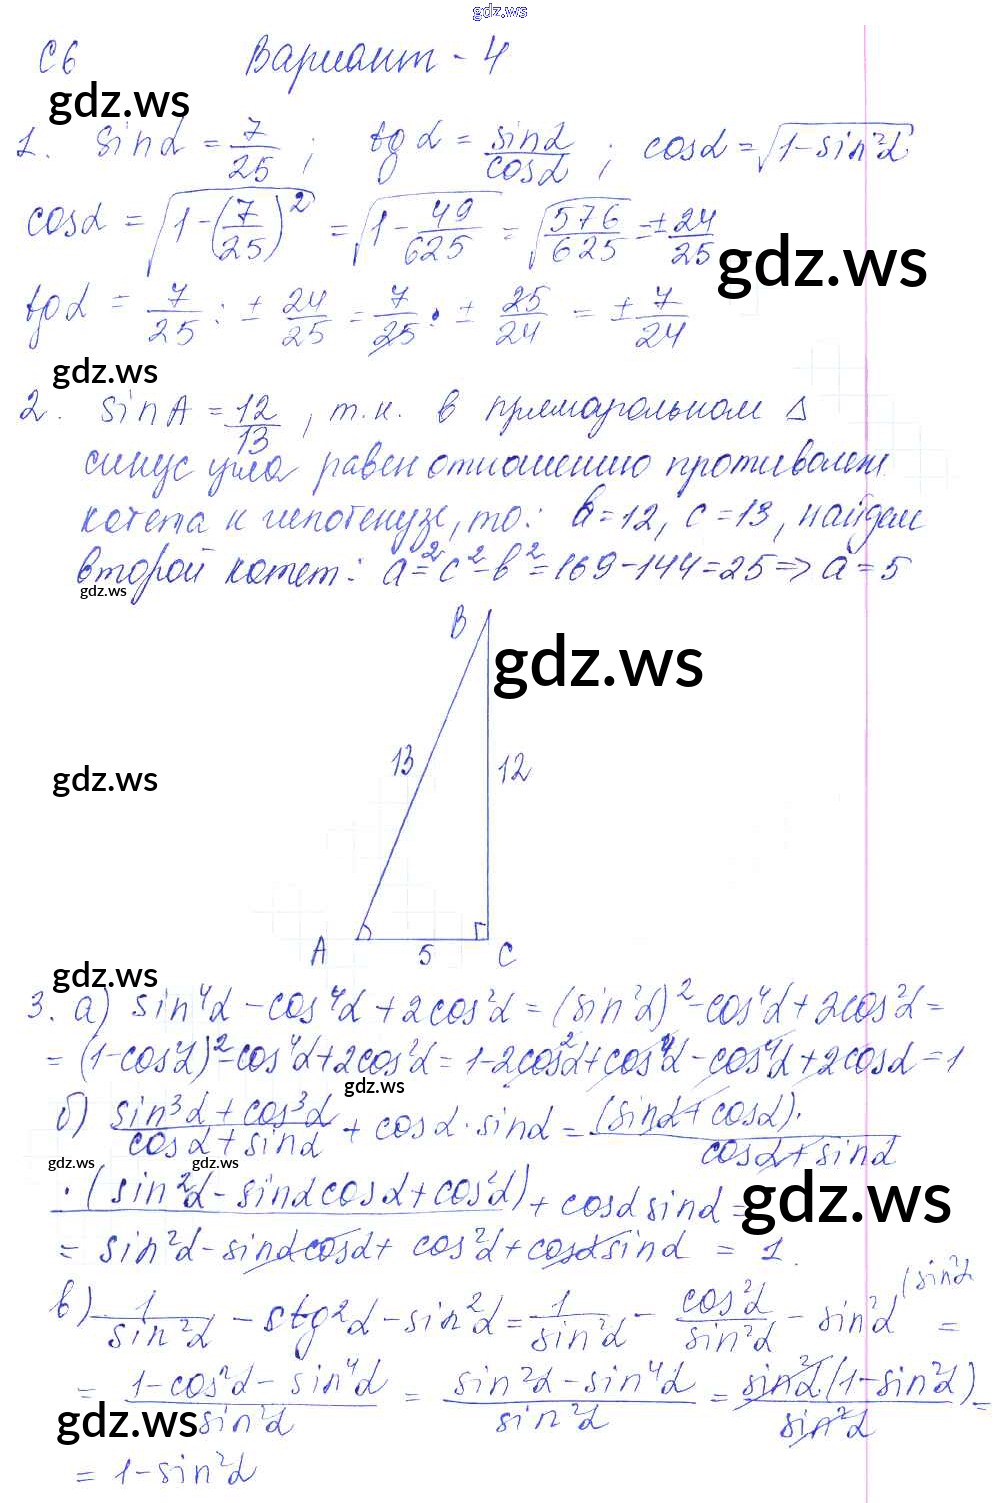 gdz.ws
С6 Вариант - 4
gdz.ws
1. sinα = 7/25 ; tgα = sinα/cosα ; cosα = √(1-sin²α)
cosα = √(1-(7/25)²) = √(1-49/625) = √(576/625) = ±24/25
gdz.ws
tgα = 7/25 : ± 24/25 = 7/25 · ± 25/24 = ±7/24
gdz.ws
2. sinA = 12/13, т.к. в прямоугольном Δ
синус угла равен отношению противолеж
катета к гипотенузе, то: b=12, c=13, найдем
второй катет: a²=c²-b²=169-144=25=>a=5
gdz.ws
B
gdz.ws
13 12
gdz.ws
A 5 C
gdz.ws
3. а) sin⁴α - cos⁴α + 2cos²α = (sin²α)² - cos⁴α + 2cos²α =
= (1-cos²α)² - cos⁴α + 2cos²α = 1-2cos²α + cos⁴α - cos⁴α + 2cosα = 1
gdz.ws
б) (sin³α + cos³α)/(cosα + sinα) + cosα · sinα = (sinα + cosα)·/(cosα + sinα)
gdz.ws gdz.ws
·(sin²α - sinαcosα + cos²α) + cosαsinα =
gdz.ws
= sin²α - sinαcosα + cos²α + cosαsinα = 1.
в) 1/sin²α - ctg²α - sin²α = 1/sin²α - cos²α/sin²α - sin²α (sin²α =
= (1-cos²α - sin⁴α)/sin²α = (sin²α - sin⁴α)/sin²α = sin²α(1-sin²α)/sin²α =
gdz.ws
= 1-sin²α